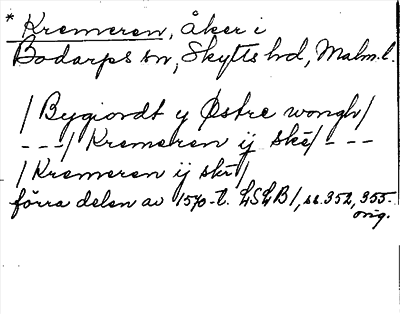 * Kremeren, åker i
Bodarps sn, Skytts hd, Malm. l.
/Bygiordt y Østre wongh/
---/Kremeren ij skē/---
/Kremeren ij skī/
förra delen av 1570-t. LSLB1, ss. 352, 355.
orig.